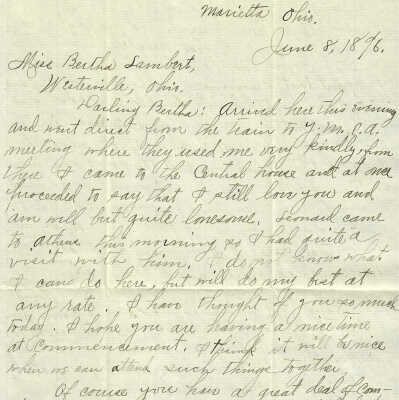 Marietta Ohio.
June 8, 1896.
Miss Bertha Lambert,
Westerville, Ohio.
Darling Bertha: Arrived here this evening
and went direct from the train to Y.M.C.A.
meeting where they used me very kindly, from
there I came to the Central house and at once
proceeded to say that I still love you and
am well but quite lonesome. Leonard came
to Athens this morning so I had quite a
visit with him. I do not know what
I can do here, but will do my best at
any rate. I have thought of you so much
today. I hope you are having a nice time
at commencement. I think it will be nice
when we can attend such things together.
Of course you have a great deal of com-